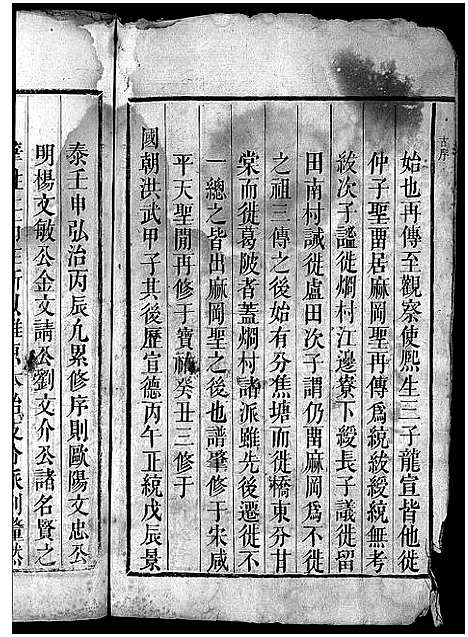 古序
始也再傳至觀察使熙生三子龍宣皆他徙
仲子聖畱居麻岡聖再傳爲統紱綬統無考
紱次子謐徙烱村江邊寮下綬長子議徙留
田南村諴徙盧田次子謂仍畱麻岡爲不徙
之祖三傳之後始有分焦塘而徙橋東分甘
棠而徙葛陂者蓋烱村諸派雖先後遷徙不
一總之皆出麻岡聖之後也譜肇修于宋咸
平天聖間再修于寶祐癸丑三修于
國朝洪武甲子其後歷宣德丙午正統戊辰景
泰壬申弘治丙辰凢累修序則歐陽文忠公
明楊文敏公金文請公劉文介公諸名賢之